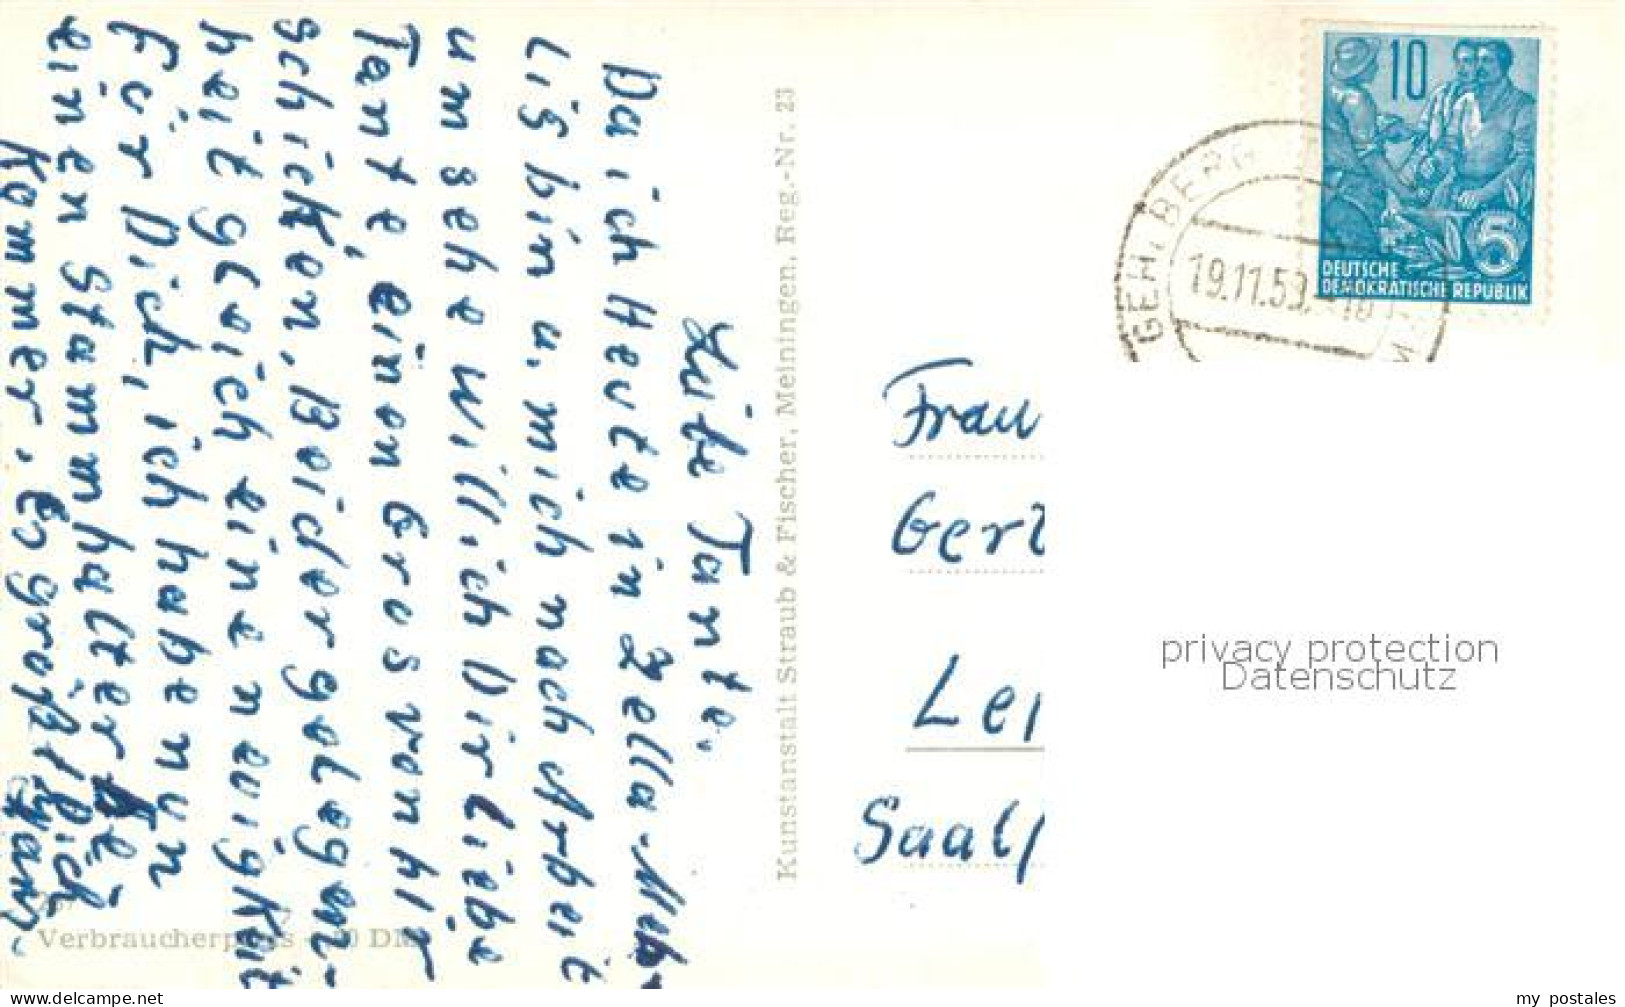 Liebe Tante.
Da ich Heute in Zella-Meh-
lis bin u. mich nach Arbeit
umsehe will ich Dir liebe
Tante, einen Grus von hir
schicken, Beider gelegen-
heit gleich eine neuigkeit
Für Dich, ich habe nun
einen Stammhalter be-
kommen. Es grüßt Dich
Kunstanstalt Straub & Fischer, Meiningen, Reg.-Nr. 23
Verbraucherpreis DM
10
5
DEUTSCHE
DEMOKRATISCHE REPUBLIK
BERG
19.11.59.-18
Frau
Gert
Lei
Saalf
privacy protection
Datenschutz
www.delcampe.net
my_postales